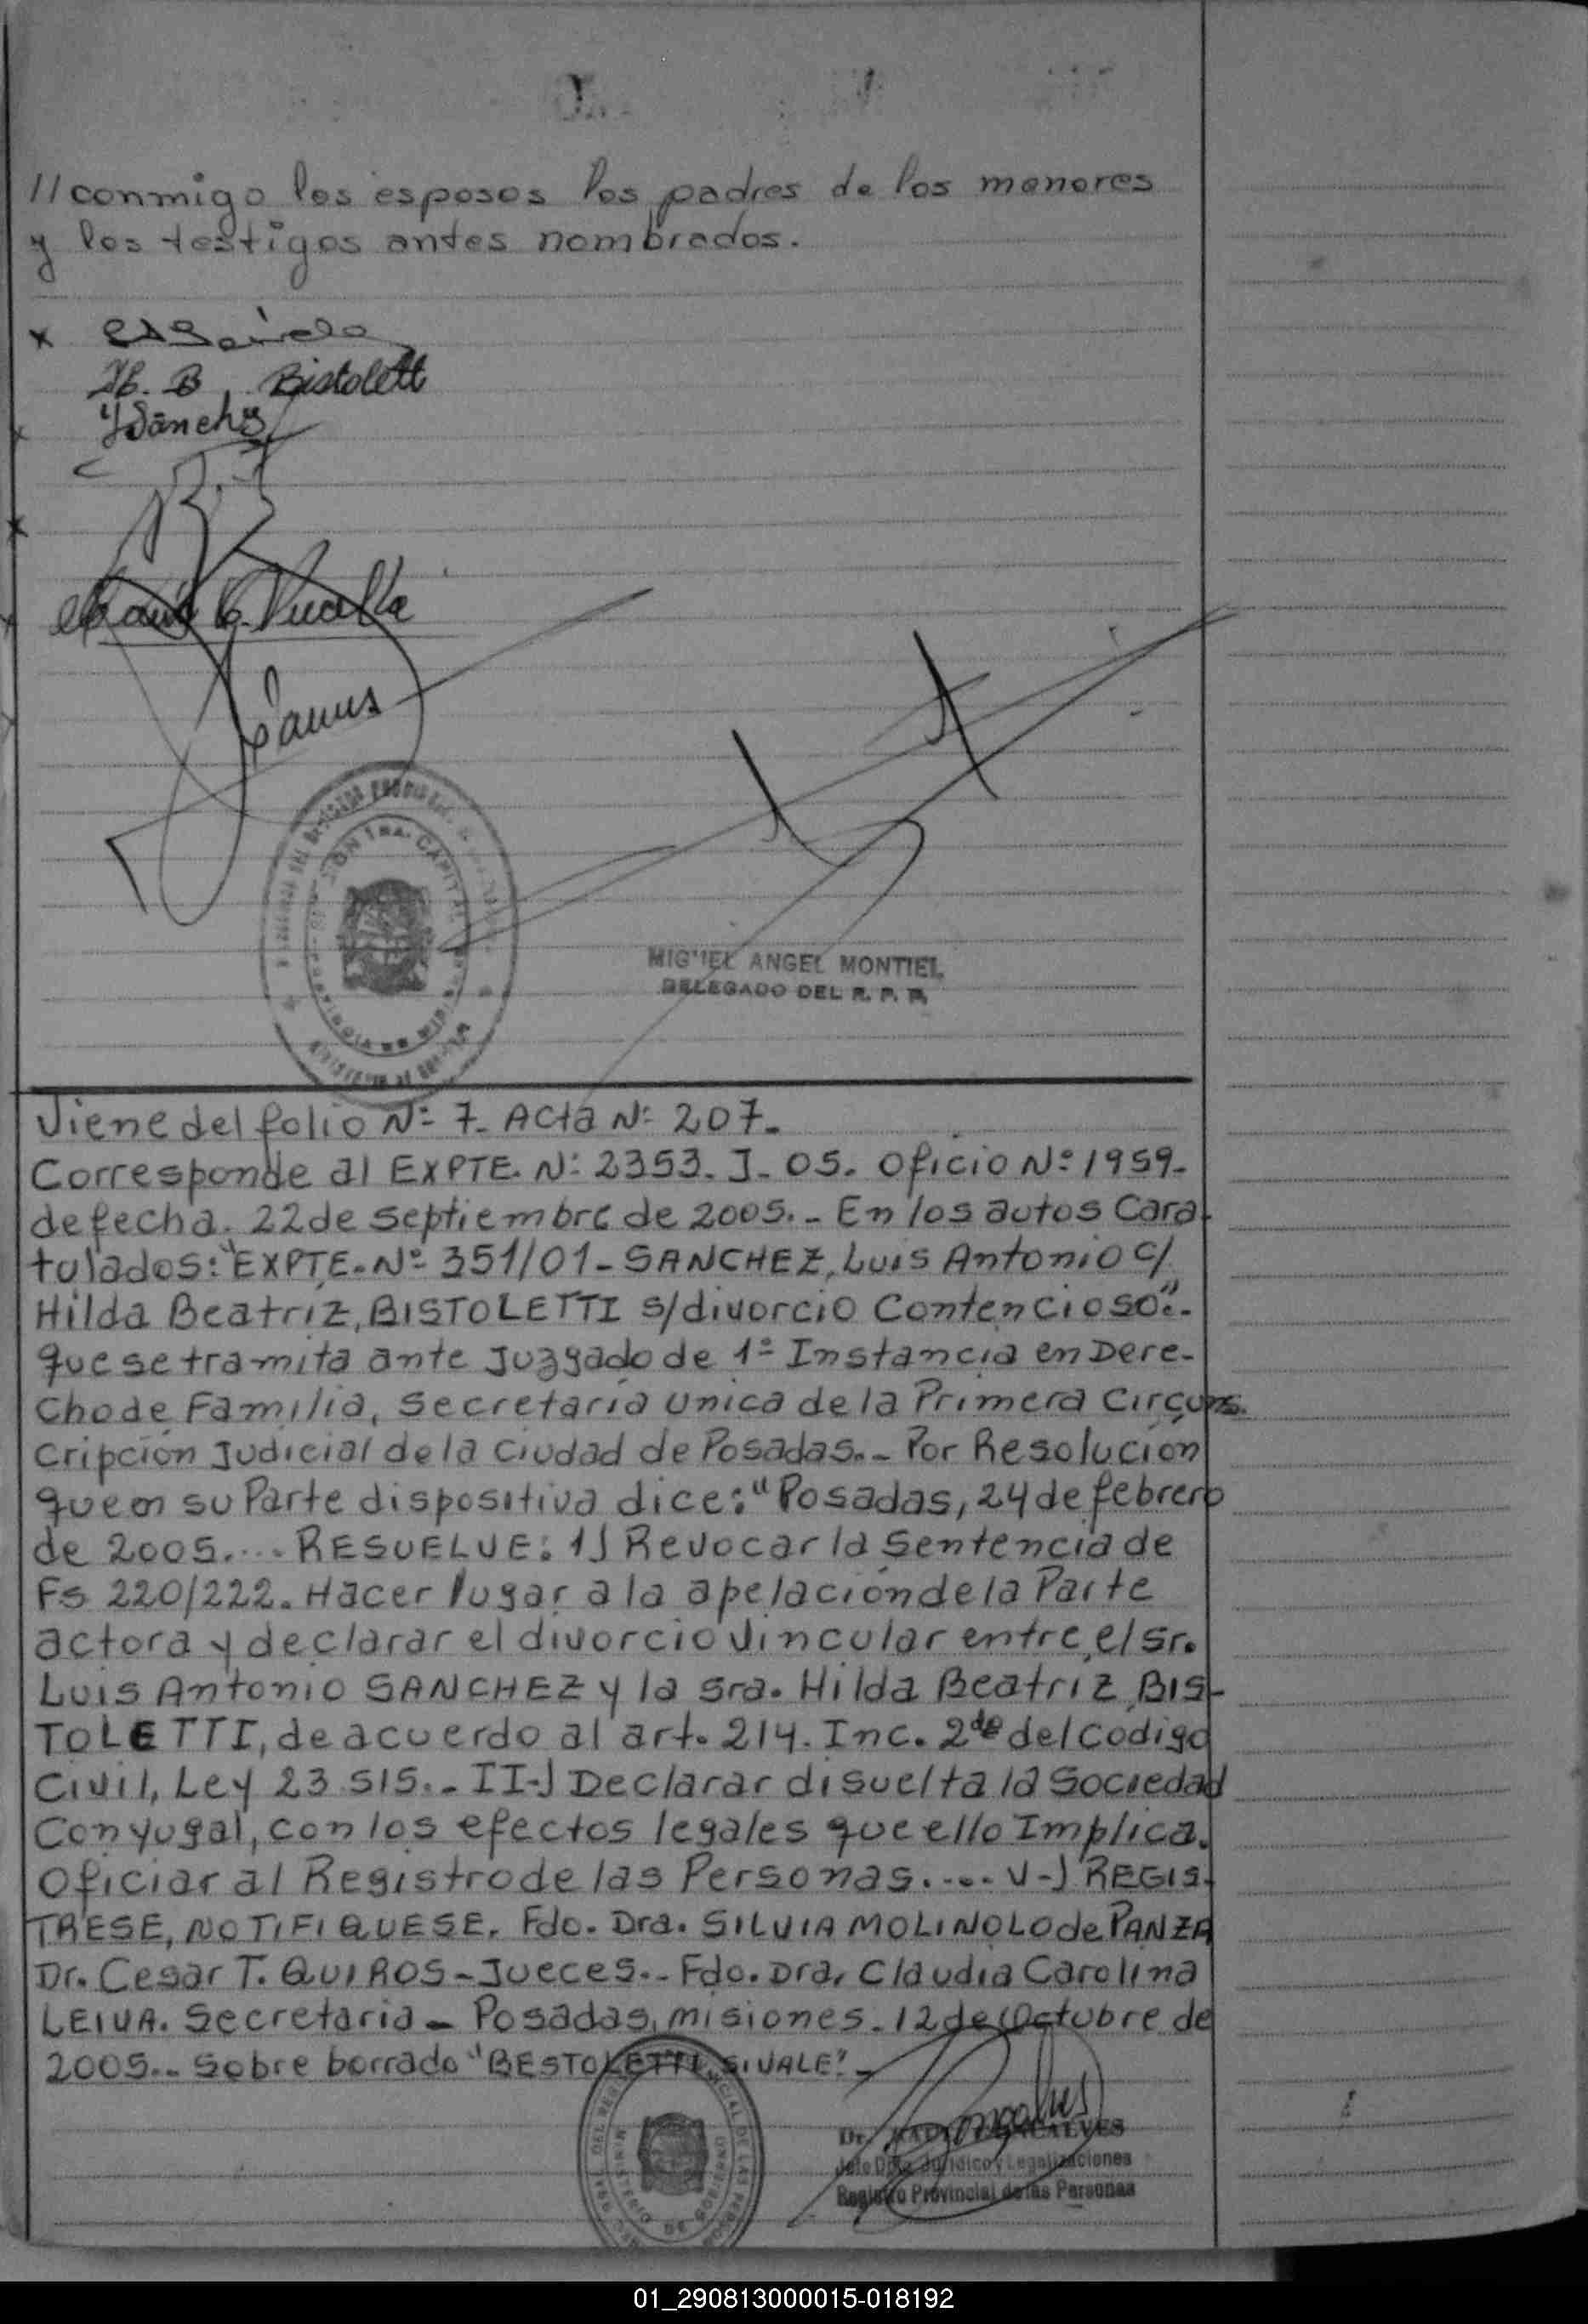 //conmigo los esposos los padres de los menores
y los testigos antes nombrados.
H. B. Bistolett
MIGUEL ANGEL MONTIEL
DELEGADO DEL R. P. P.
Viene del folio Nº 7. Acta Nº 207.
Corresponde al EXPTE. Nº 2353. J. 05. Oficio Nº 1959.
de fecha. 22 de septiembre de 2005.- En los autos Cara-
tulados: "EXPTE. Nº 351/01 - SANCHEZ, Luis Antonio C/
Hilda Beatriz, BISTOLETTI s/divorcio Contencioso".-
que se tramita ante Juzgado de 1º Instancia en Dere-
cho de Familia, Secretaria Unica de la Primera Circuns-
cripción Judicial de la Ciudad de Posadas.- Por Resolución
que en su Parte dispositiva dice: "Posadas, 24 de febrero
de 2005.... RESUELVE: 1) Revocar la Sentencia de
Fs 220/222. Hacer lugar a la apelación de la Parte
actora y declarar el divorcio Vincular entre el Sr.
Luis Antonio SANCHEZ y la Sra. Hilda Beatriz BIS-
TOLETTI, de acuerdo al art. 214. Inc. 2do del Codigo
Civil, Ley 23 515.- II-) Declarar disuelta la Sociedad
Conyugal, con los efectos legales que ello Implica.
Oficiar al Registro de las Personas..... V-) REGIS-
TRESE, NOTIFIQUESE. Fdo. Dra. SILVIA MOLINOLO de PANZA
Dr. Cesar T. QUIROS - Jueces.- Fdo. Dra. Claudia Carolina
LEIVA. Secretaria - Posadas, misiones. 12 de Octubre de
2005.- Sobre borrado "BESTOLETTI SI VALE".-
Jefe Dpto. Jurídico y Legalizaciones
Registro Provincial de las Personas
01_290813000015-018192